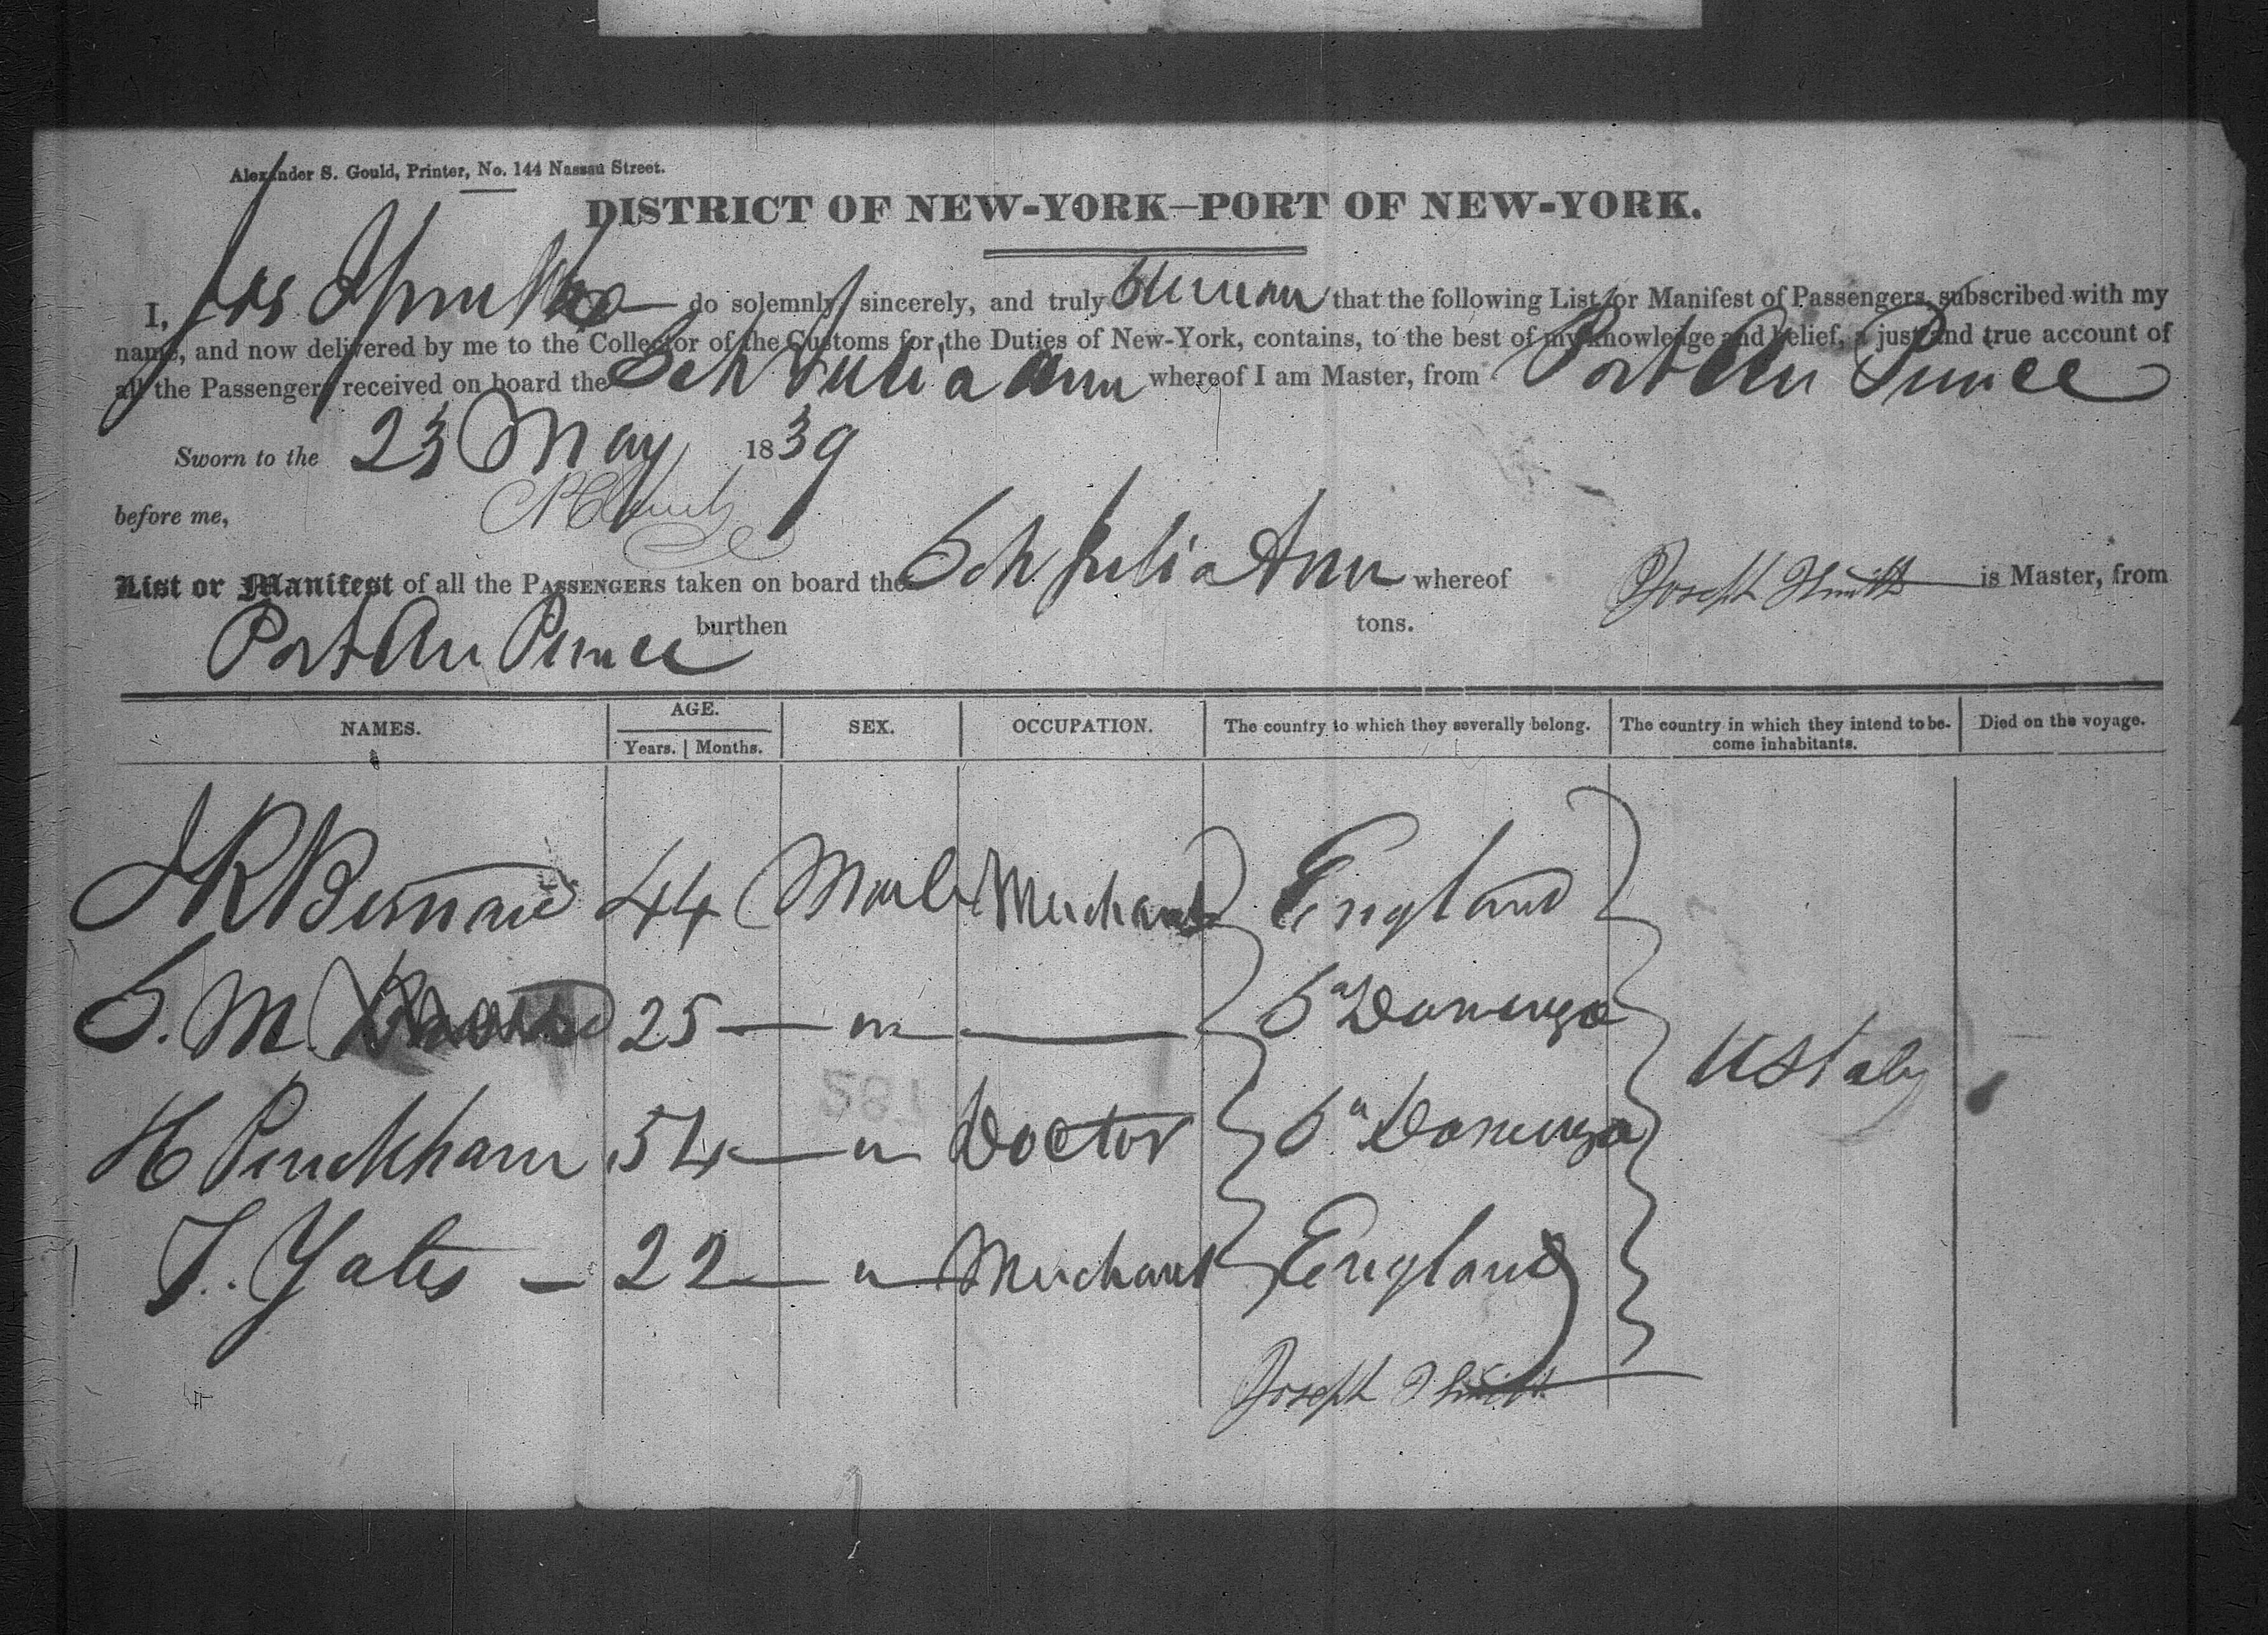 Alexander S. Gould, Printer, No. 144 Nassau Street.
DISTRICT OF NEW-YORK—PORT OF NEW-YORK.
I, Jos Smith do solemnly, sincerely, and truly swear that the following List or Manifest of Passengers, subscribed with my
name, and now delivered by me to the Collector of the Customs for the Duties of New-York, contains, to the best of my knowledge and belief, a just and true account of
all the Passengers received on board the Sch Julia Ann whereof I am Master, from Port Au Prince
Sworn to the 23 May 1839
before me,
List or Manifest of all the PASSENGERS taken on board the Sch Julia Ann whereof Joseph Smith is Master, from
Port Au Prince burthen tons.
NAMES. AGE. SEX. OCCUPATION. The country to which they severally belong. The country in which they intend to be- Died on the voyage.
Years. Months. come inhabitants.
J R Bernard 44 Male Merchant England
S. M. 25 — " — Sn Domingo
H Pinckham 54 — " Doctor Sn Domingo
T. Yates — 22 — " — Merchant England
Joseph Smith